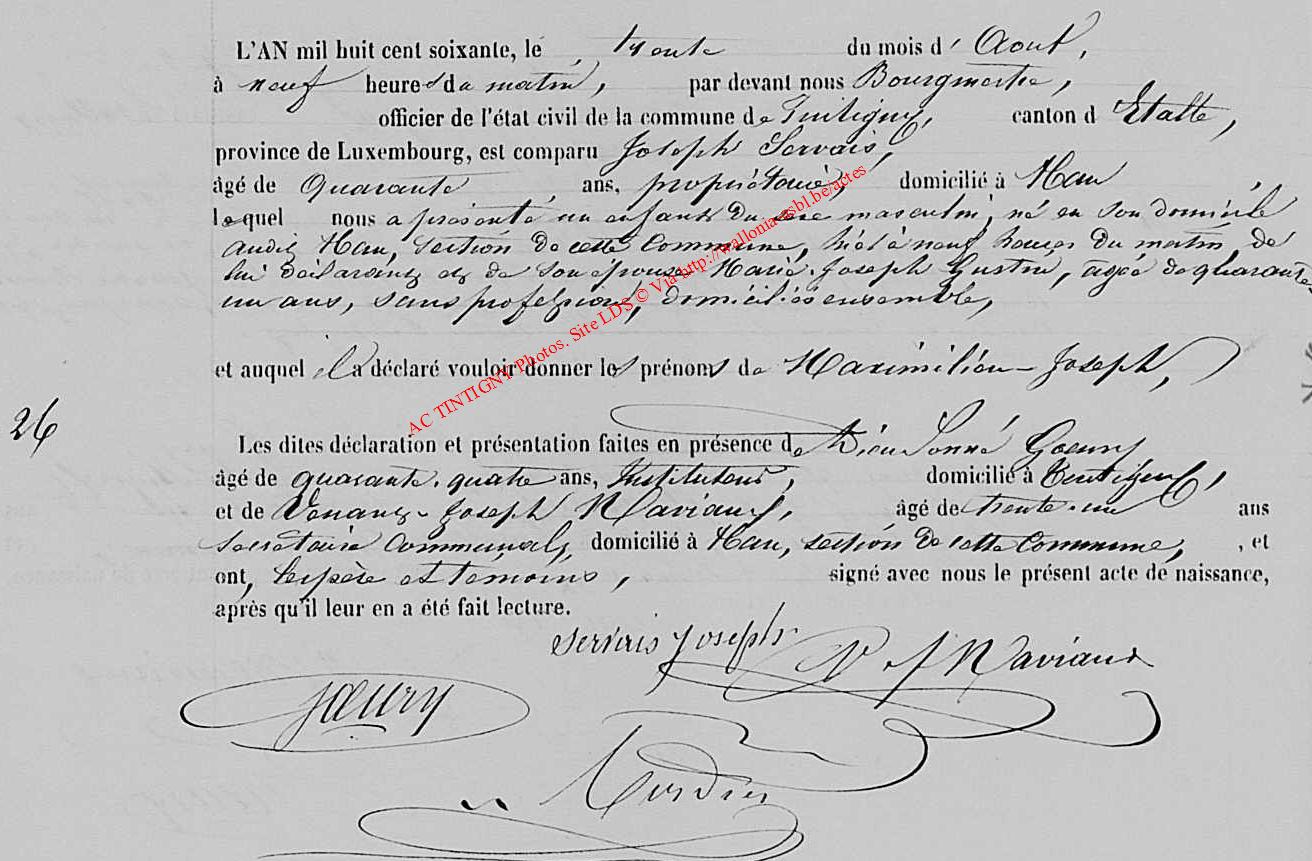 L'AN mil huit cent soixante, le trente du mois d' Aout,
à neuf heures du matin, par devant nous Bourgmestre,
officier de l'état civil de la commune de Tintigny, canton d' Etalle,
province de Luxembourg, est comparu Joseph Servais,
âgé de Quarante ans, propriétaire, domicilié à Han,
lequel nous a présenté un enfant du sexe masculin, né en son domicile
audit Han, section de cette Commune, hier à neuf heures du matin de
lui déclarant et de son épouse Marie-Joseph Gustin, agée de quarante
un ans, sans profession, domiciliés ensemble,
et auquel il a déclaré vouloir donner les prénoms de Maximilien-Joseph,
26
Les dites déclaration et présentation faites en présence de Dieudonné Goeury
âgé de quarante-quatre ans, Instituteur, domicilié à Tintigny,
et de Venant-Joseph Maviaux, âgé de trente-un ans
Secrétaire Communal, domicilié à Han, section de cette Commune, , et
ont, les père et témoins, signé avec nous le présent acte de naissance,
après qu'il leur en a été fait lecture.
Servais Joseph
V J Maviaux
Goeury
AC TINTIGNY Photos. Site LDS © Via http://wallonia-asbl.be/actes